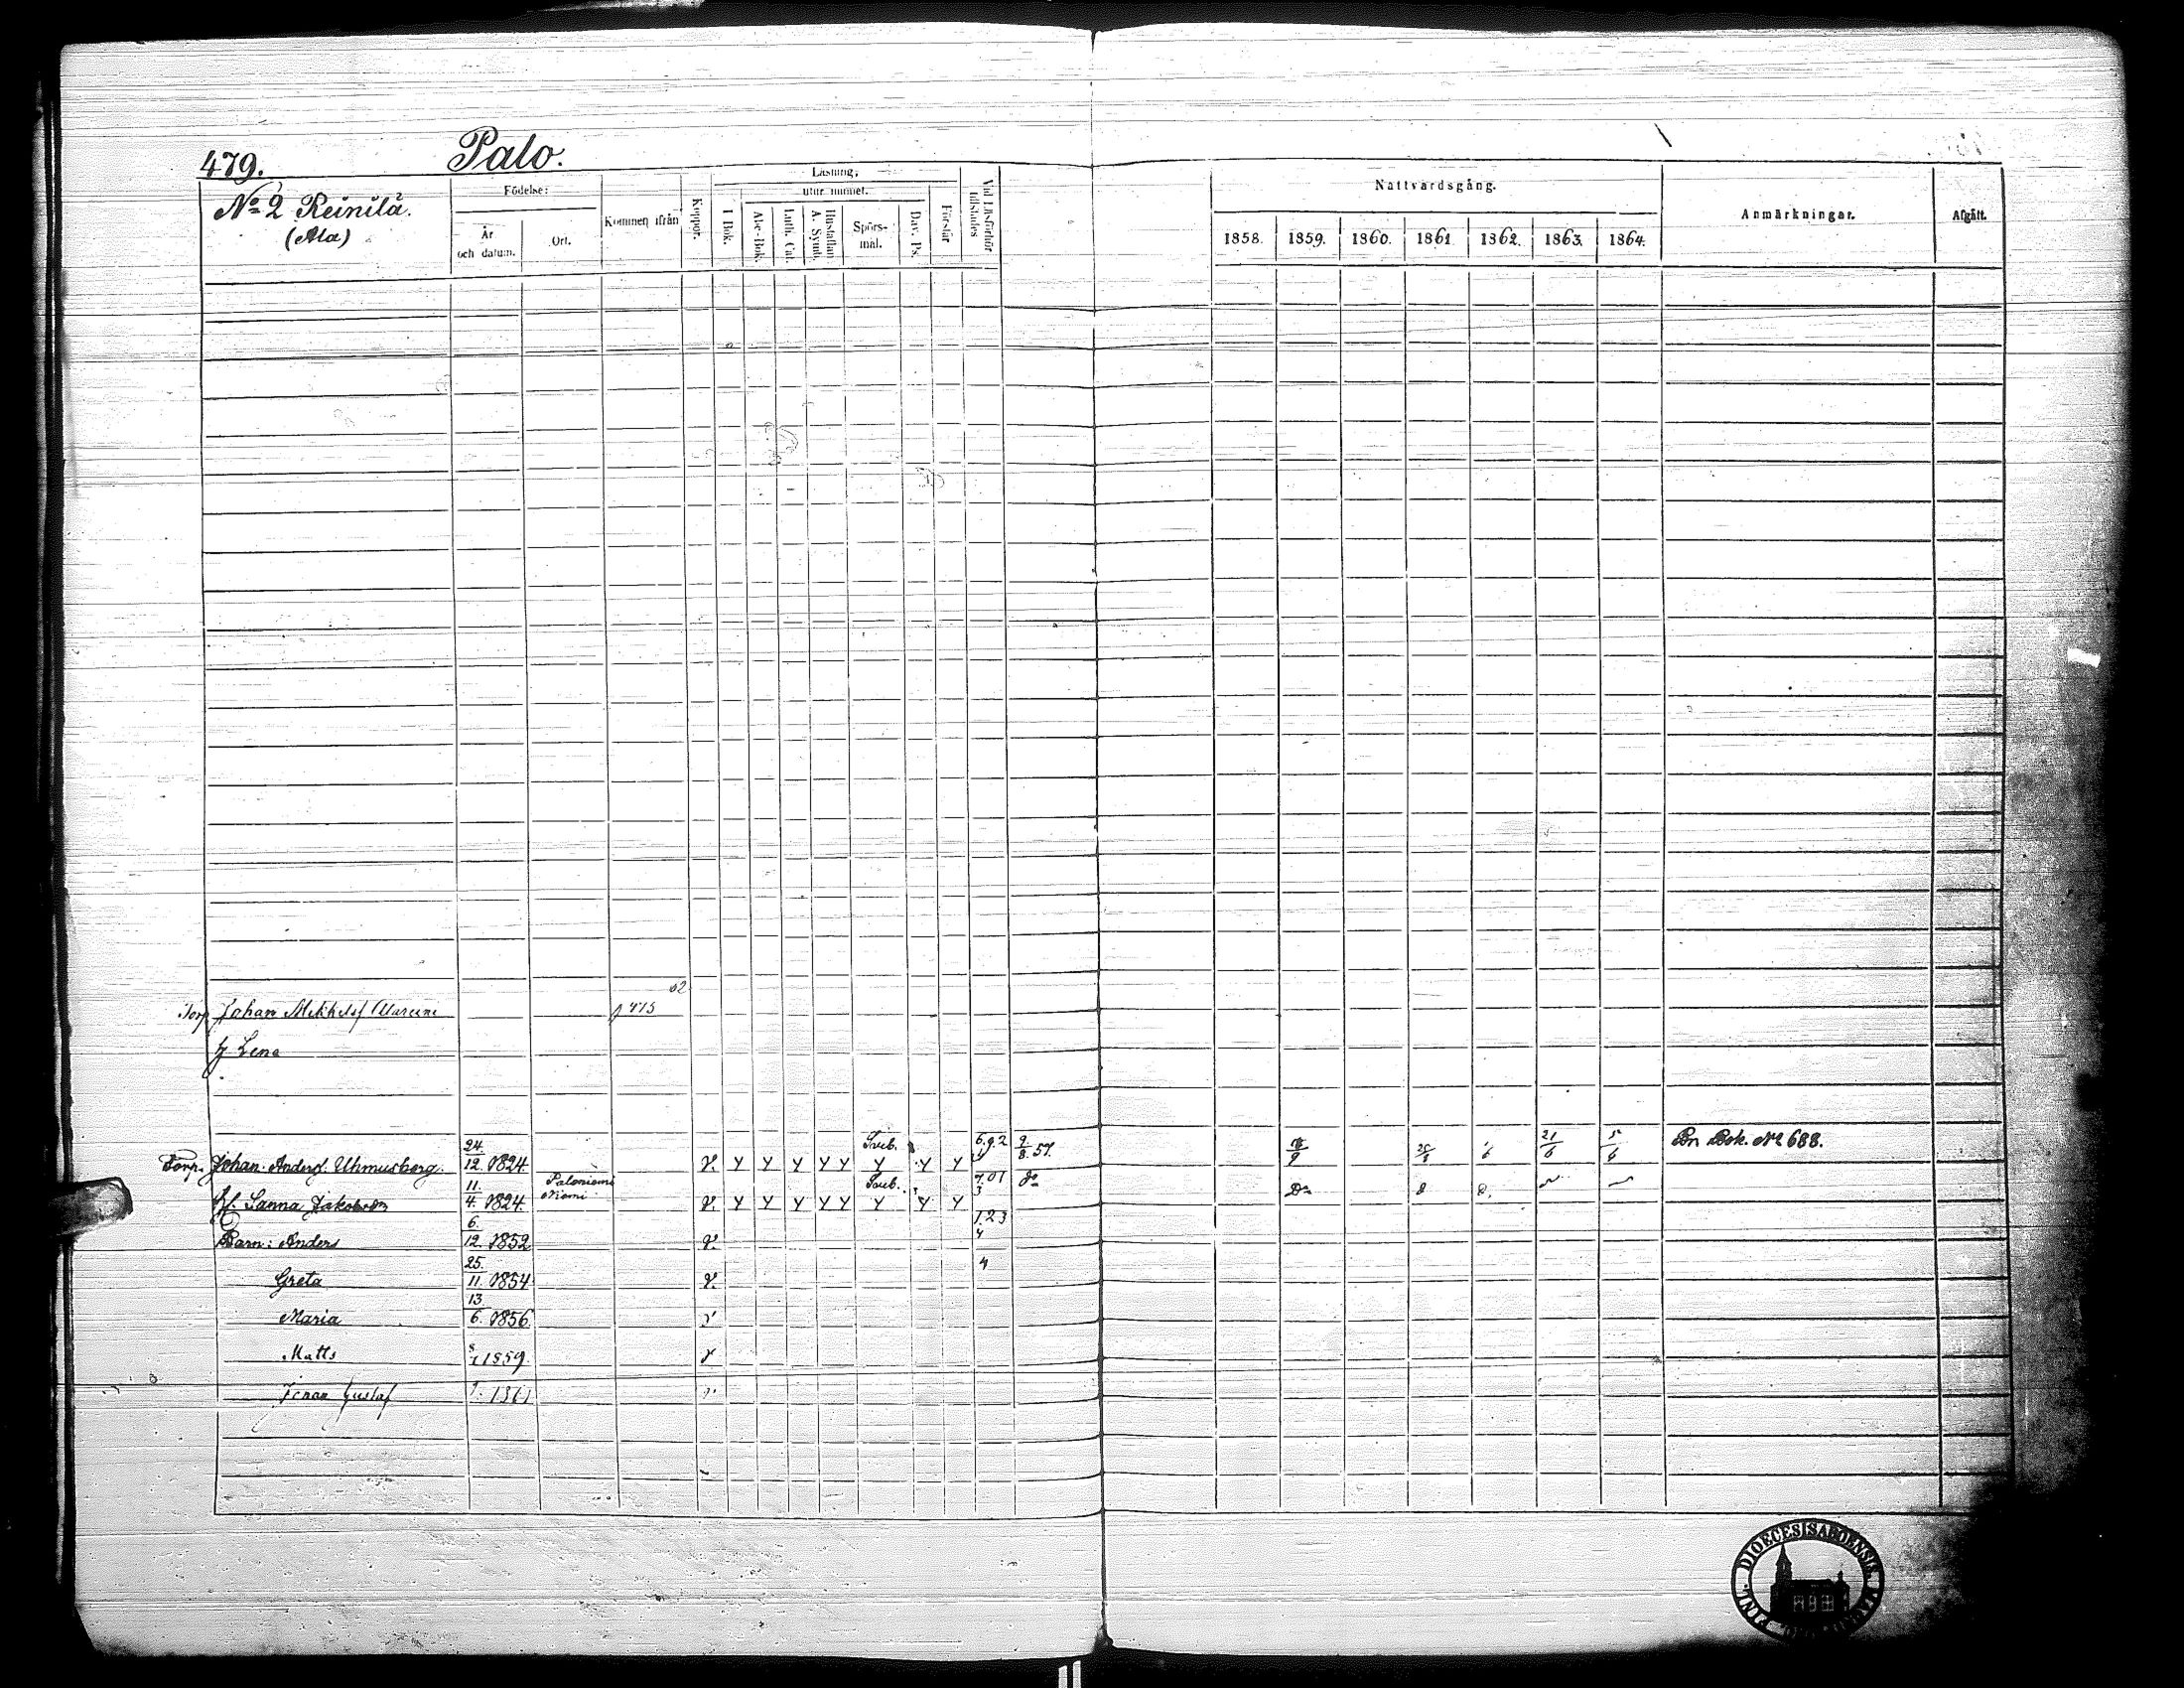 479. Palo.
No 2 Reinilä.
(Ala)
Födelse:
År och datum.
Ort.
Kommen ifrån
Koppor.
Läsning;
I Bok.
utur minnet.
Abc-Bok.
Luth. Cat.
Hustaflan A. Symb.
Spörs-mål.
Dav. Ps.
Förstår
Vid Läsförhör tillstädes
Nattvardsgång.
1858. 1859. 1860. 1861 1862. 1863. 1864.
Anmärkningar.
Afgått.
62
Torp Johan Mickelsf p 475
h Lena
Torp. Johan Andersf. Uhmusberg. 24. 12. 1824. v. y y y y y Svub. y y y 6.9.2 4 9 8. 57. 21 6 5 6 Bn Bok. No 688.
H. Sanna Jakobsdr 11. 4. 1824. Paloniemi v. y y y y y y y y 7.01 3 Do Do
Barn: Anders 6. 12. 1852 v. 1.2.3 4
Greta 25. 11. 1854 v. 4
Maria 13 6. 1856 v
Matts 1859. v
Johan Gustaf 1861 v.
DIOECESIS ABOENSIS